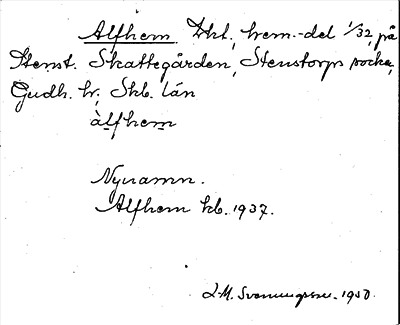 Alfhem. Lht, hem.-del 1/32 på
Stenst. Skattegården, Stenstorps socken,
Gudh. hr, Skb. län
àlfhem
Nynamn.
Alfhem kb. 1937.
J.M. Svenungsson. 1950.